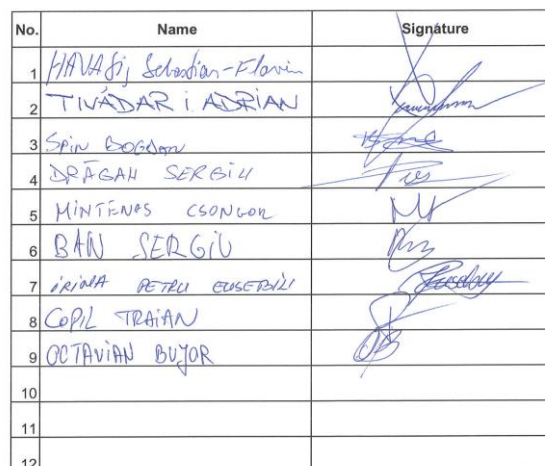 No. Name Signature
1 Sebastian-Flavin
2 TIVADAR i ADRIAN
3 SPIN BOGDAN
4 DRĂGAN SERGIU
5 CSONGOR
6 BAN SERGIU
7 IRIMIA PETRU EUSEBIU
8 COPIL TRAIAN
9 OCTAVIAN BUJOR
10
11
12